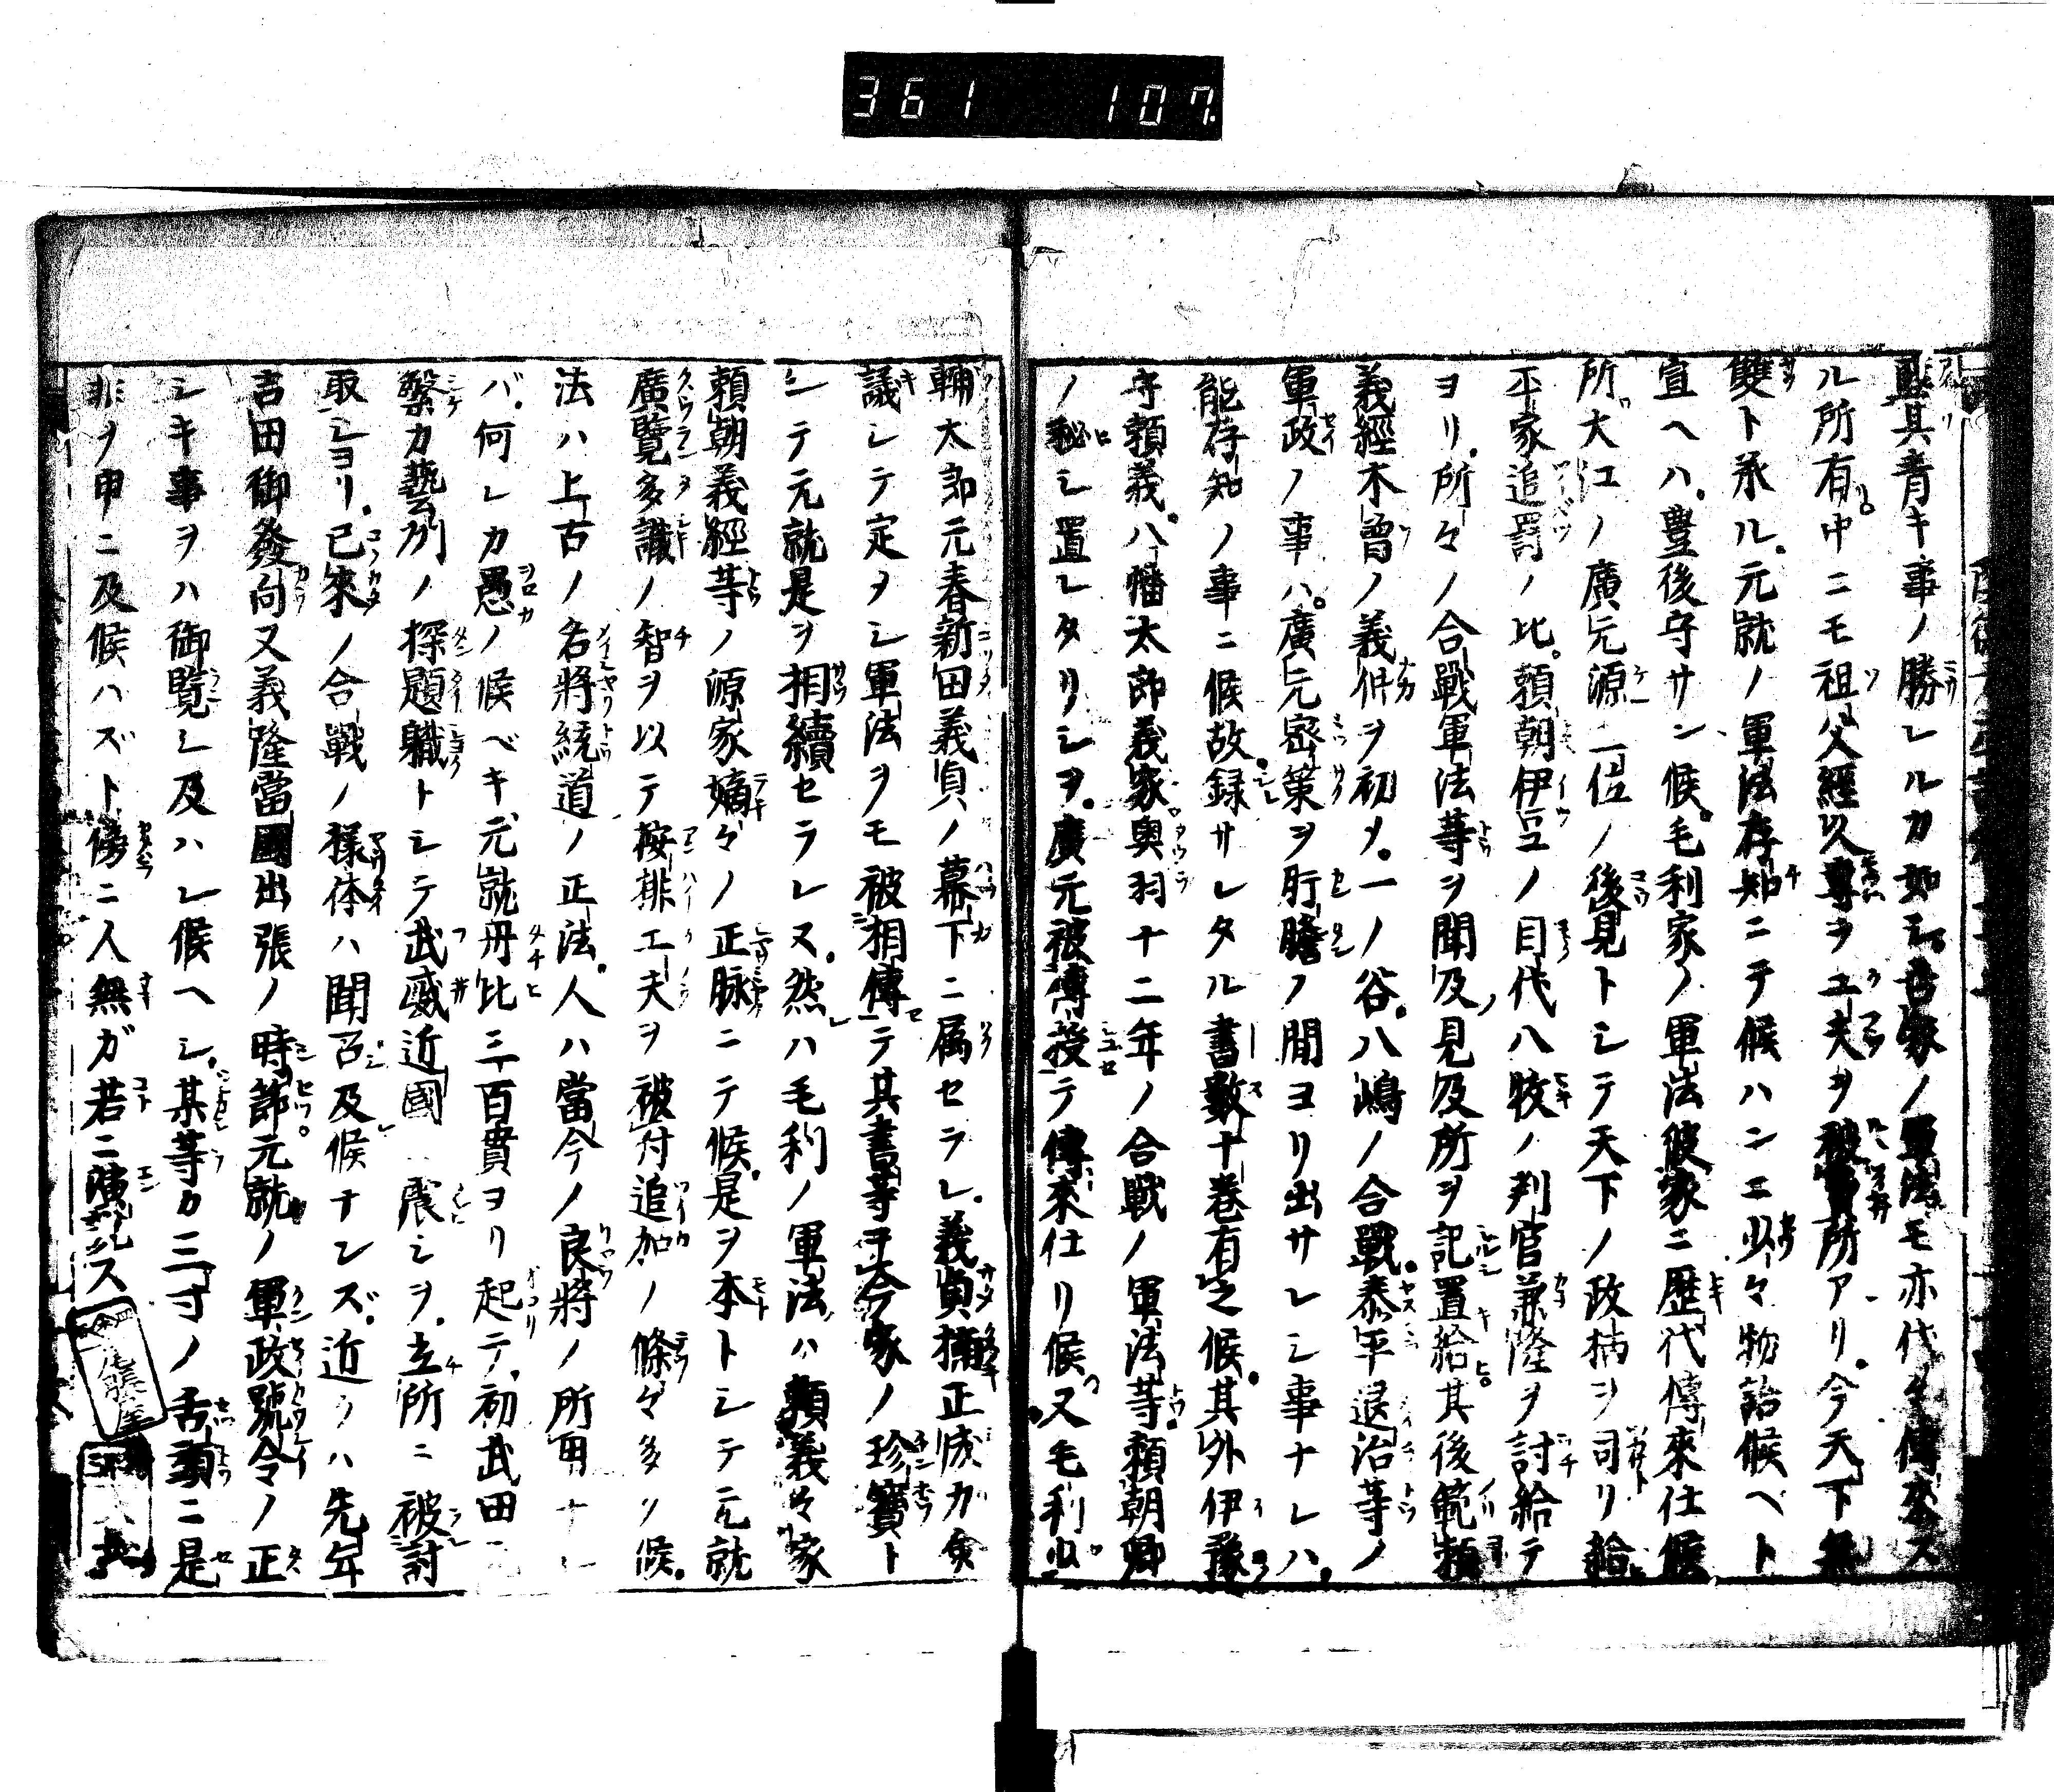 361 107
其青キ事ノ勝レルカ如シ吉家ノ軍法モ亦代々傳來ス
ル所有中ニモ祖父經久專ヲ工夫ヲ被費所アリ今天下無
雙ト承ル元就ノ軍法存知ニテ候ハンエ少々物語候ヘト
宣ヘハ豊後守サン候毛利家ノ軍法彼家ニ歴代傳來仕候
所大江ノ廣元源二位ノ後見トシテ天下ノ政柄ヲ司リ給
平家追罰ノ比頼朝伊豆ノ目代八牧ノ判官兼隆ヲ討給テ
ヨリ所々ノ合戰軍法等ヲ聞及見及所ヲ記置給其後範頼
義經木曾ノ義仲ヲ初メ一ノ谷八嶋ノ合戰泰平退治等ノ
軍政ノ事ハ廣元密策ヲ肝膽ノ間ヨリ出サレシ事ナレハ
能存知ノ事ニ候故録サレタル書數十巻有之候其外伊豫
守頼義八幡太郎義家奥羽十二年ノ合戰ノ軍法等頼朝卿
ノ秘シ置レタリシヲ廣元被傳授テ傳來仕リ候又毛利
輔太郎元春新田義貞ノ幕下ニ属セラレ義貞楠正成ガ僉
議シテ定ヲシ軍法ヲモ被相傳テ其書等ヲ今家ノ珍寶ト
シテ元就是ヲ相續セラレヌ然ハ毛利ノ軍法ハ頼義々家
頼朝義經等ノ源家嫡々ノ正脉ニテ候是ヲ本トシテ元就
廣覽多識ノ智ヲ以テ按排工夫ヲ被付追加ノ條々多リ候
法ハ上古ノ名將統道ノ正法人ハ當今ノ良將ノ所用ナレ
バ何レカ愚ノ候ベキ元就丹比三百貫ヨリ起テ初武田
繁カ藝州ノ探題職トシテ武威近國 震シヲ立所ニ被討
取シヨリ已來ノ合戰ノ様体ハ聞召及候ナンズ近クハ先年
吉田御發向又義隆當國出張ノ時節元就ノ軍政號令ノ正
シキ事ヲハ御覽シ及ハレ候ヘシ某等カ三寸ノ舌頭ニ是
非ノ申ニ及候ハズト傍ニ人無ガ若ニ演説ス